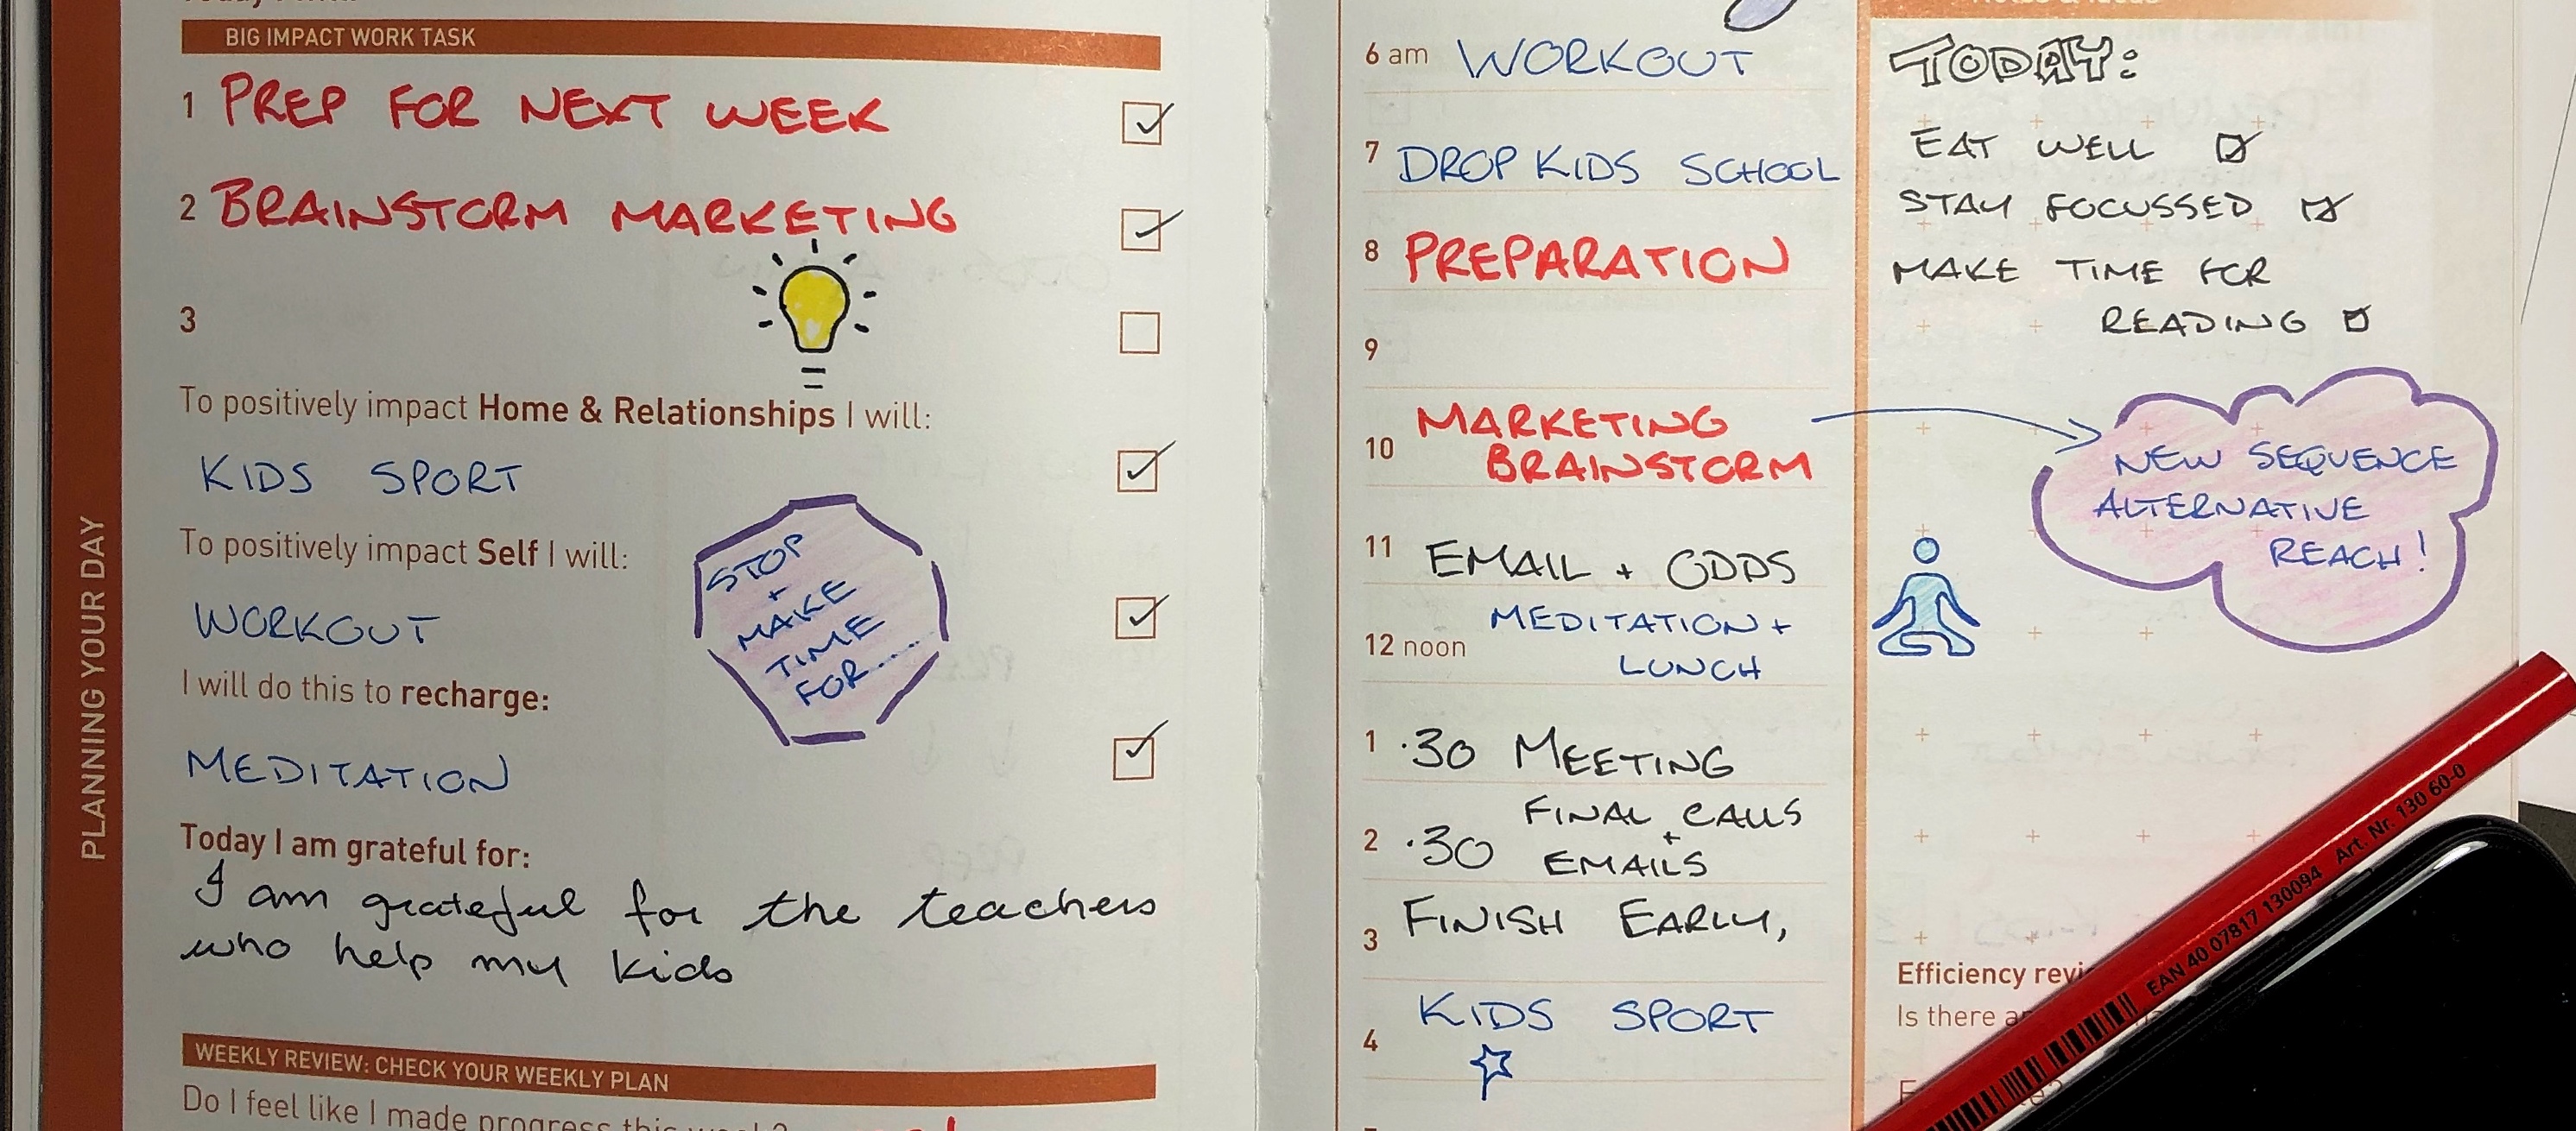 BIG IMPACT WORK TASK
1 PREP FOR NEXT WEEK
2 BRAINSTORM MARKETING
3
To positively impact Home & Relationships I will:
KIDS SPORT
To positively impact Self I will:
WORKOUT
I will do this to recharge:
MEDITATION
STOP
+
MAKE
TIME
FOR......
Today I am grateful for:
I am grateful for the teachers
who help my kids
WEEKLY REVIEW: CHECK YOUR WEEKLY PLAN
Do I feel like I made progress this week?
PLANNING YOUR DAY
6 am WORKOUT
7 DROP KIDS SCHOOL
8 PREPARATION
9
10 MARKETING
BRAINSTORM
11 EMAIL + ODDS
12 noon MEDITATION +
LUNCH
1 .30 MEETING
2 .30 FINAL CALLS
+
EMAILS
3 FINISH EARLY,
4 KIDS SPORT
Notes & Ideas
TODAY:
EAT WELL
STAY FOCUSSED
MAKE TIME FOR
READING
NEW SEQUENCE
ALTERNATIVE
REACH!
Efficiency
Is there
EAN 40 07817 130094 Art. Nr. 130 60-0